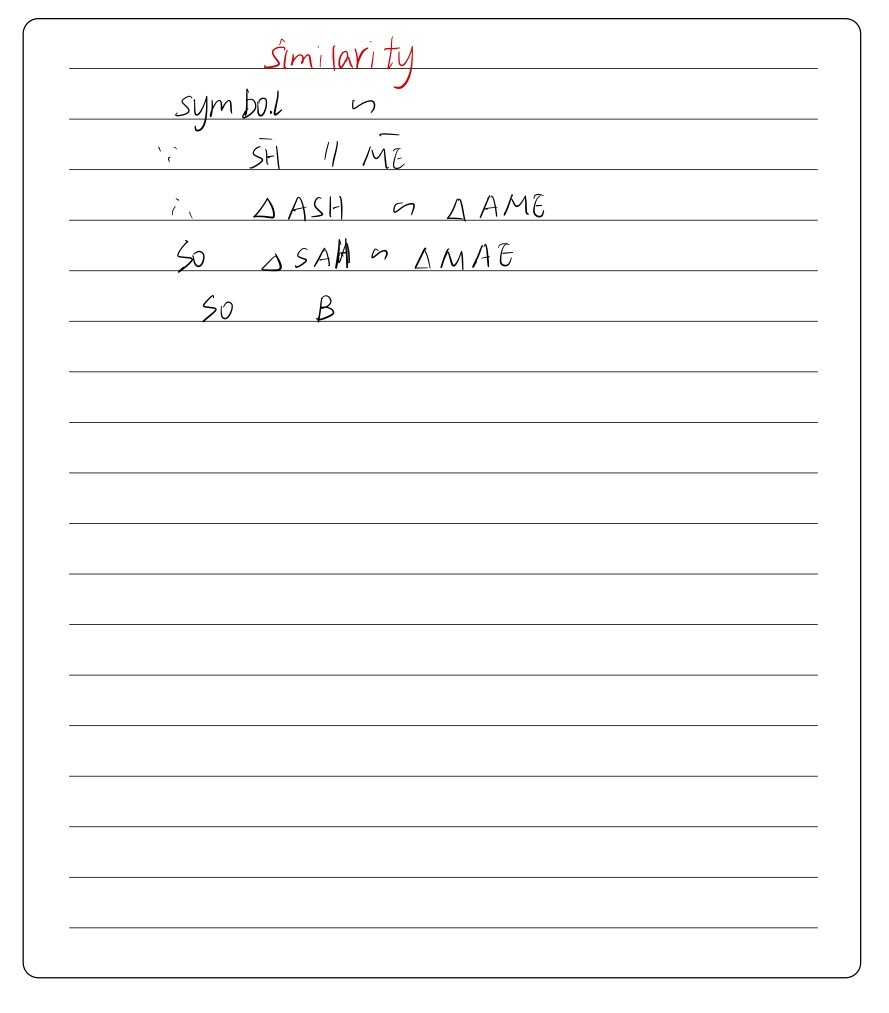 Similarity
symbol ∽
∵ S̅H̅ // M̅E̅
∴ △ASH ∽ △AME
So △SAH ∽ △MAE
So B